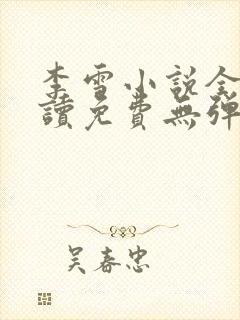 李雪小說全
讀免費無彈
吴春忠